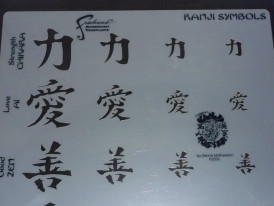 KANJI SYMBOLS
Strength
CHIKARA
力 力 力 力
Love
AI
愛 愛 愛 愛
Good
ZEN
善 善 善 善